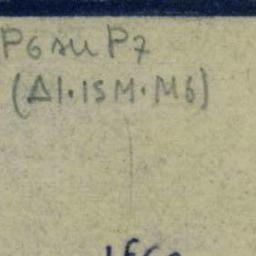 P6 su P7
(Δ1.15M.M6)